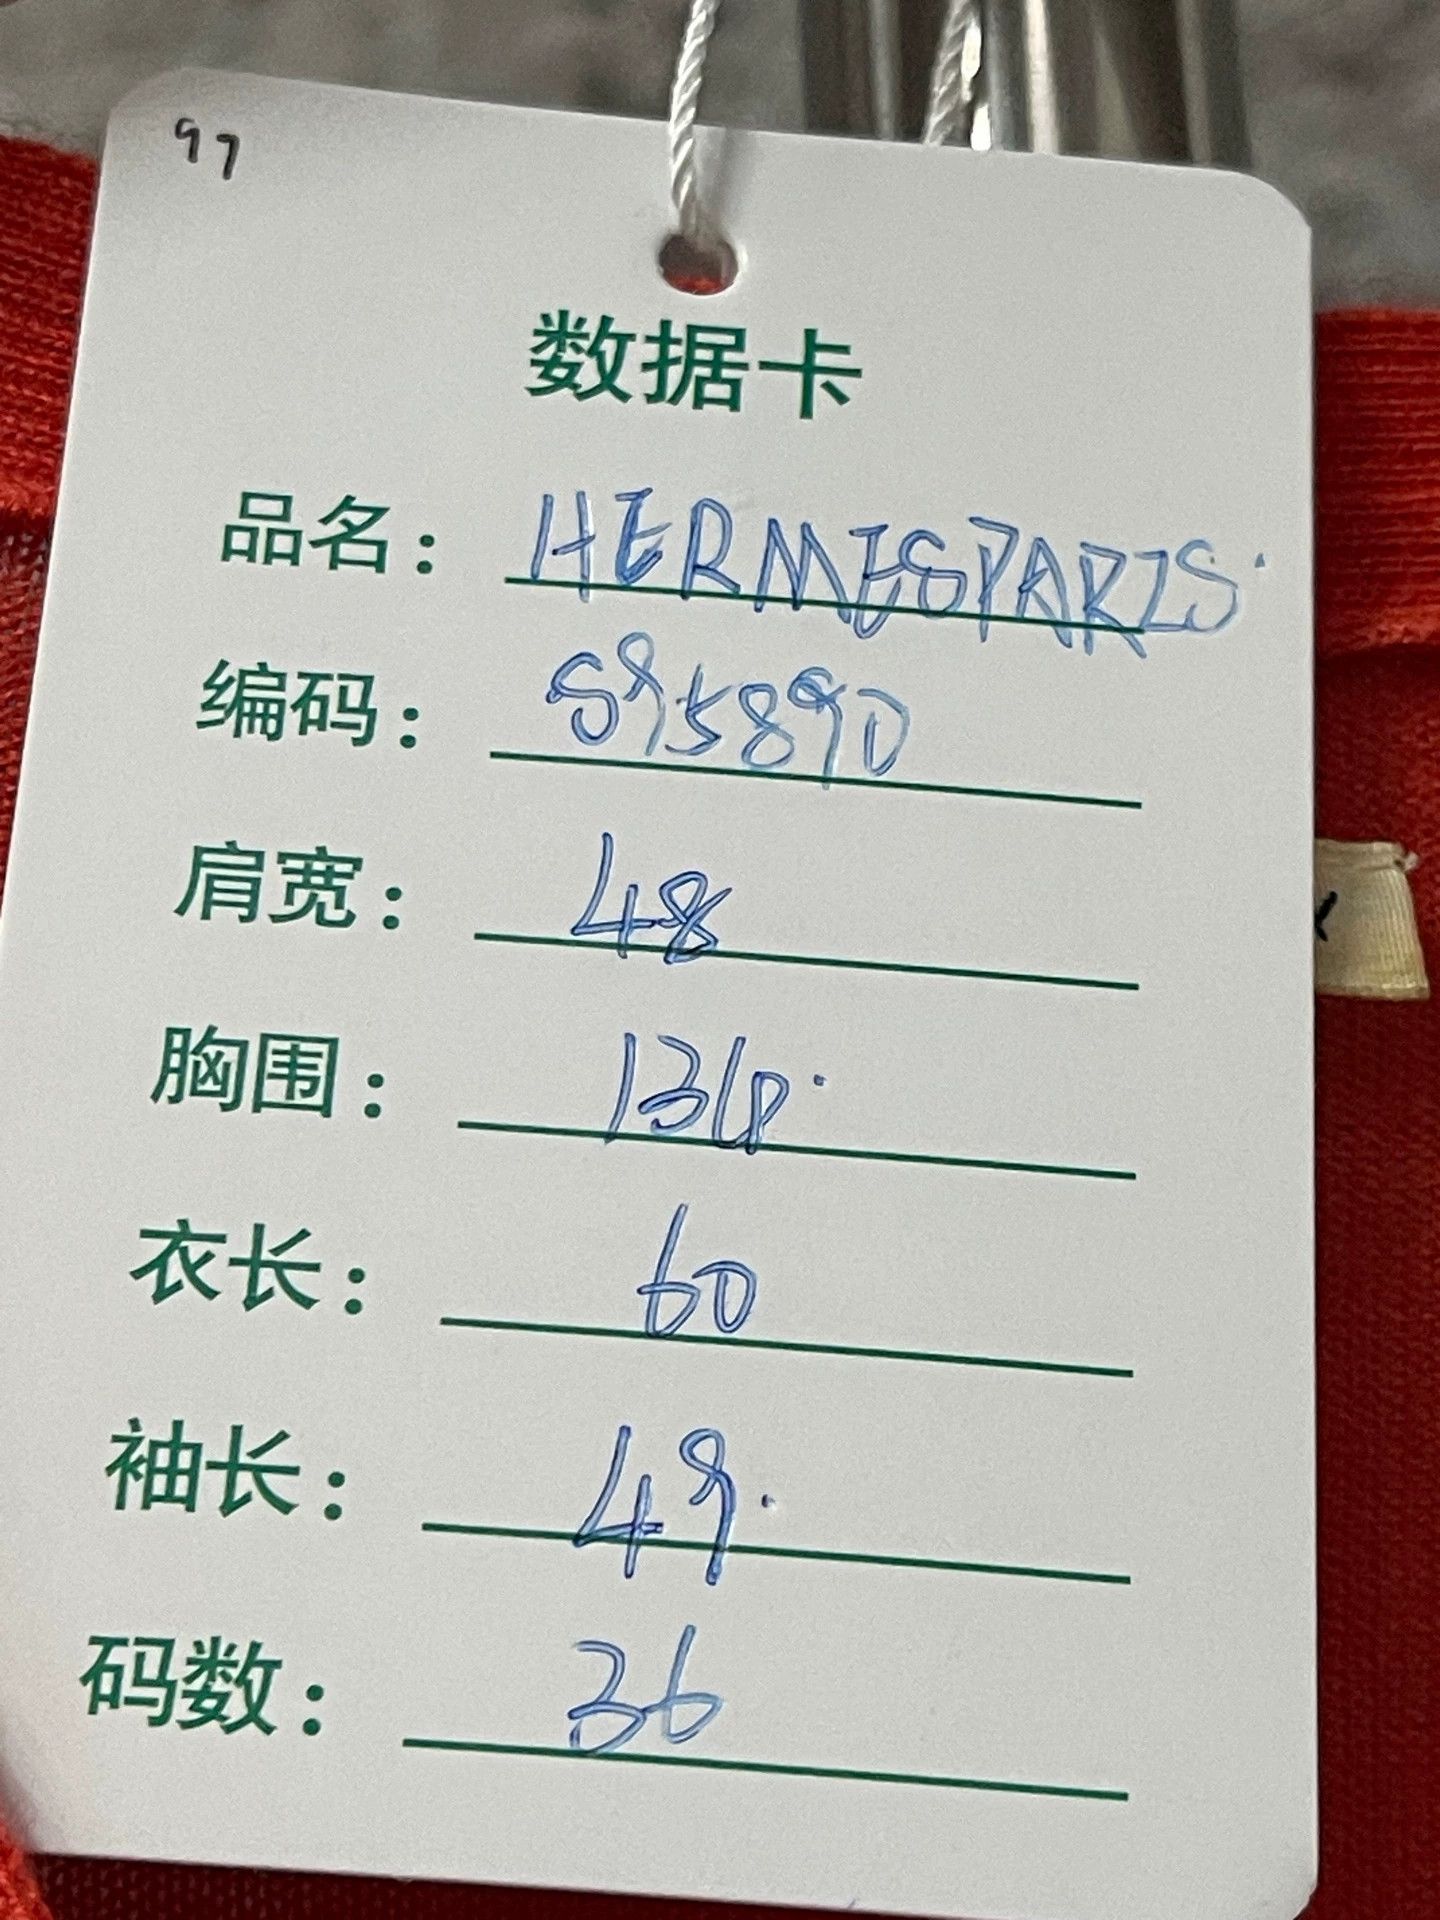 97
数据卡
品名：HERMESPARIS
编码：S95890
肩宽：48
胸围：
衣长：60
袖长：49
码数：36